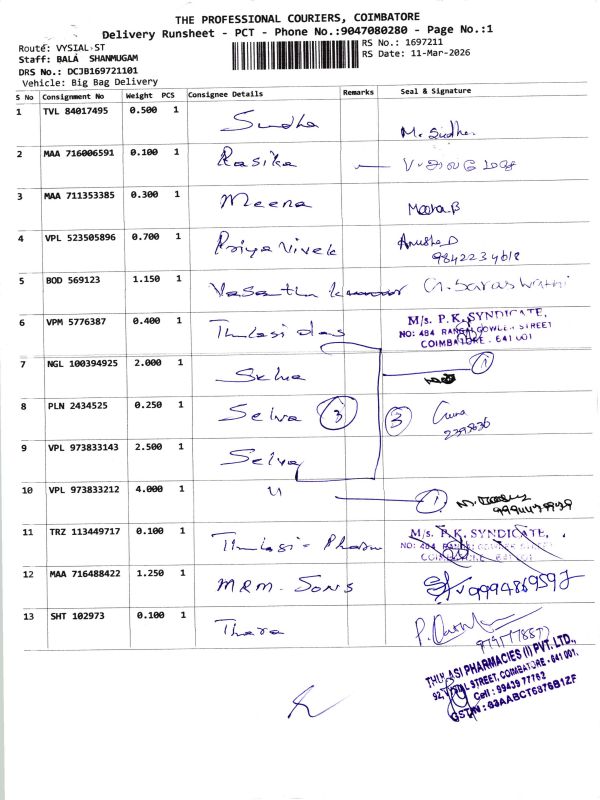 THE PROFESSIONAL COURIERS, COIMBATORE
Delivery Runsheet - PCT - Phone No.:9047080280 - Page No.:1
Route: VYSIAL ST
RS No.: 1697211
Staff: BALA SHANMUGAM
RS Date: 11-Mar-2026
DRS No.: DCJB169721101
Vehicle: Big Bag Delivery
S No Consignment No Weight PCS Consignee Details Remarks Seal & Signature
1 TVL 84017495 0.500 1 Sudha M. Sudha
2 MAA 716006591 0.100 1 Rasika
3 MAA 711353385 0.300 1 Meena Meena B
4 VPL 523505896 0.700 1 Priya Vivek Anusha D
9842234618
5 BOD 569123 1.150 1 Vasantha kumar G. Saraswathi
6 VPM 5776387 0.400 1 Thulasi das M/s. P. K. SYNDICATE,
NO: 484 RANGAI GOWDER STREET
COIMBATORE - 641 001
7 NGL 100394925 2.000 1 Selva 1
8 PLN 2434525 0.250 1 Selva 3 3
2393636
9 VPL 973833143 2.500 1 Selva
10 VPL 973833212 4.000 1 " 1
11 TRZ 113449717 0.100 1 Thulasi - Pharm M/s. P. K. SYNDICATE,
NO: 484 RANGAI GOWDER STREET
COIMBATORE - 641 001
12 MAA 716488422 1.250 1 M.R.M. Sons 9994869597
13 SHT 102973 0.100 1 Thara
THULASI PHARMACIES (I) PVT. LTD.,
92, VYSIAL STREET, COIMBATORE - 641 001.
Cell : 99439 77762
GSTIN : 33AABCT6876B1ZF